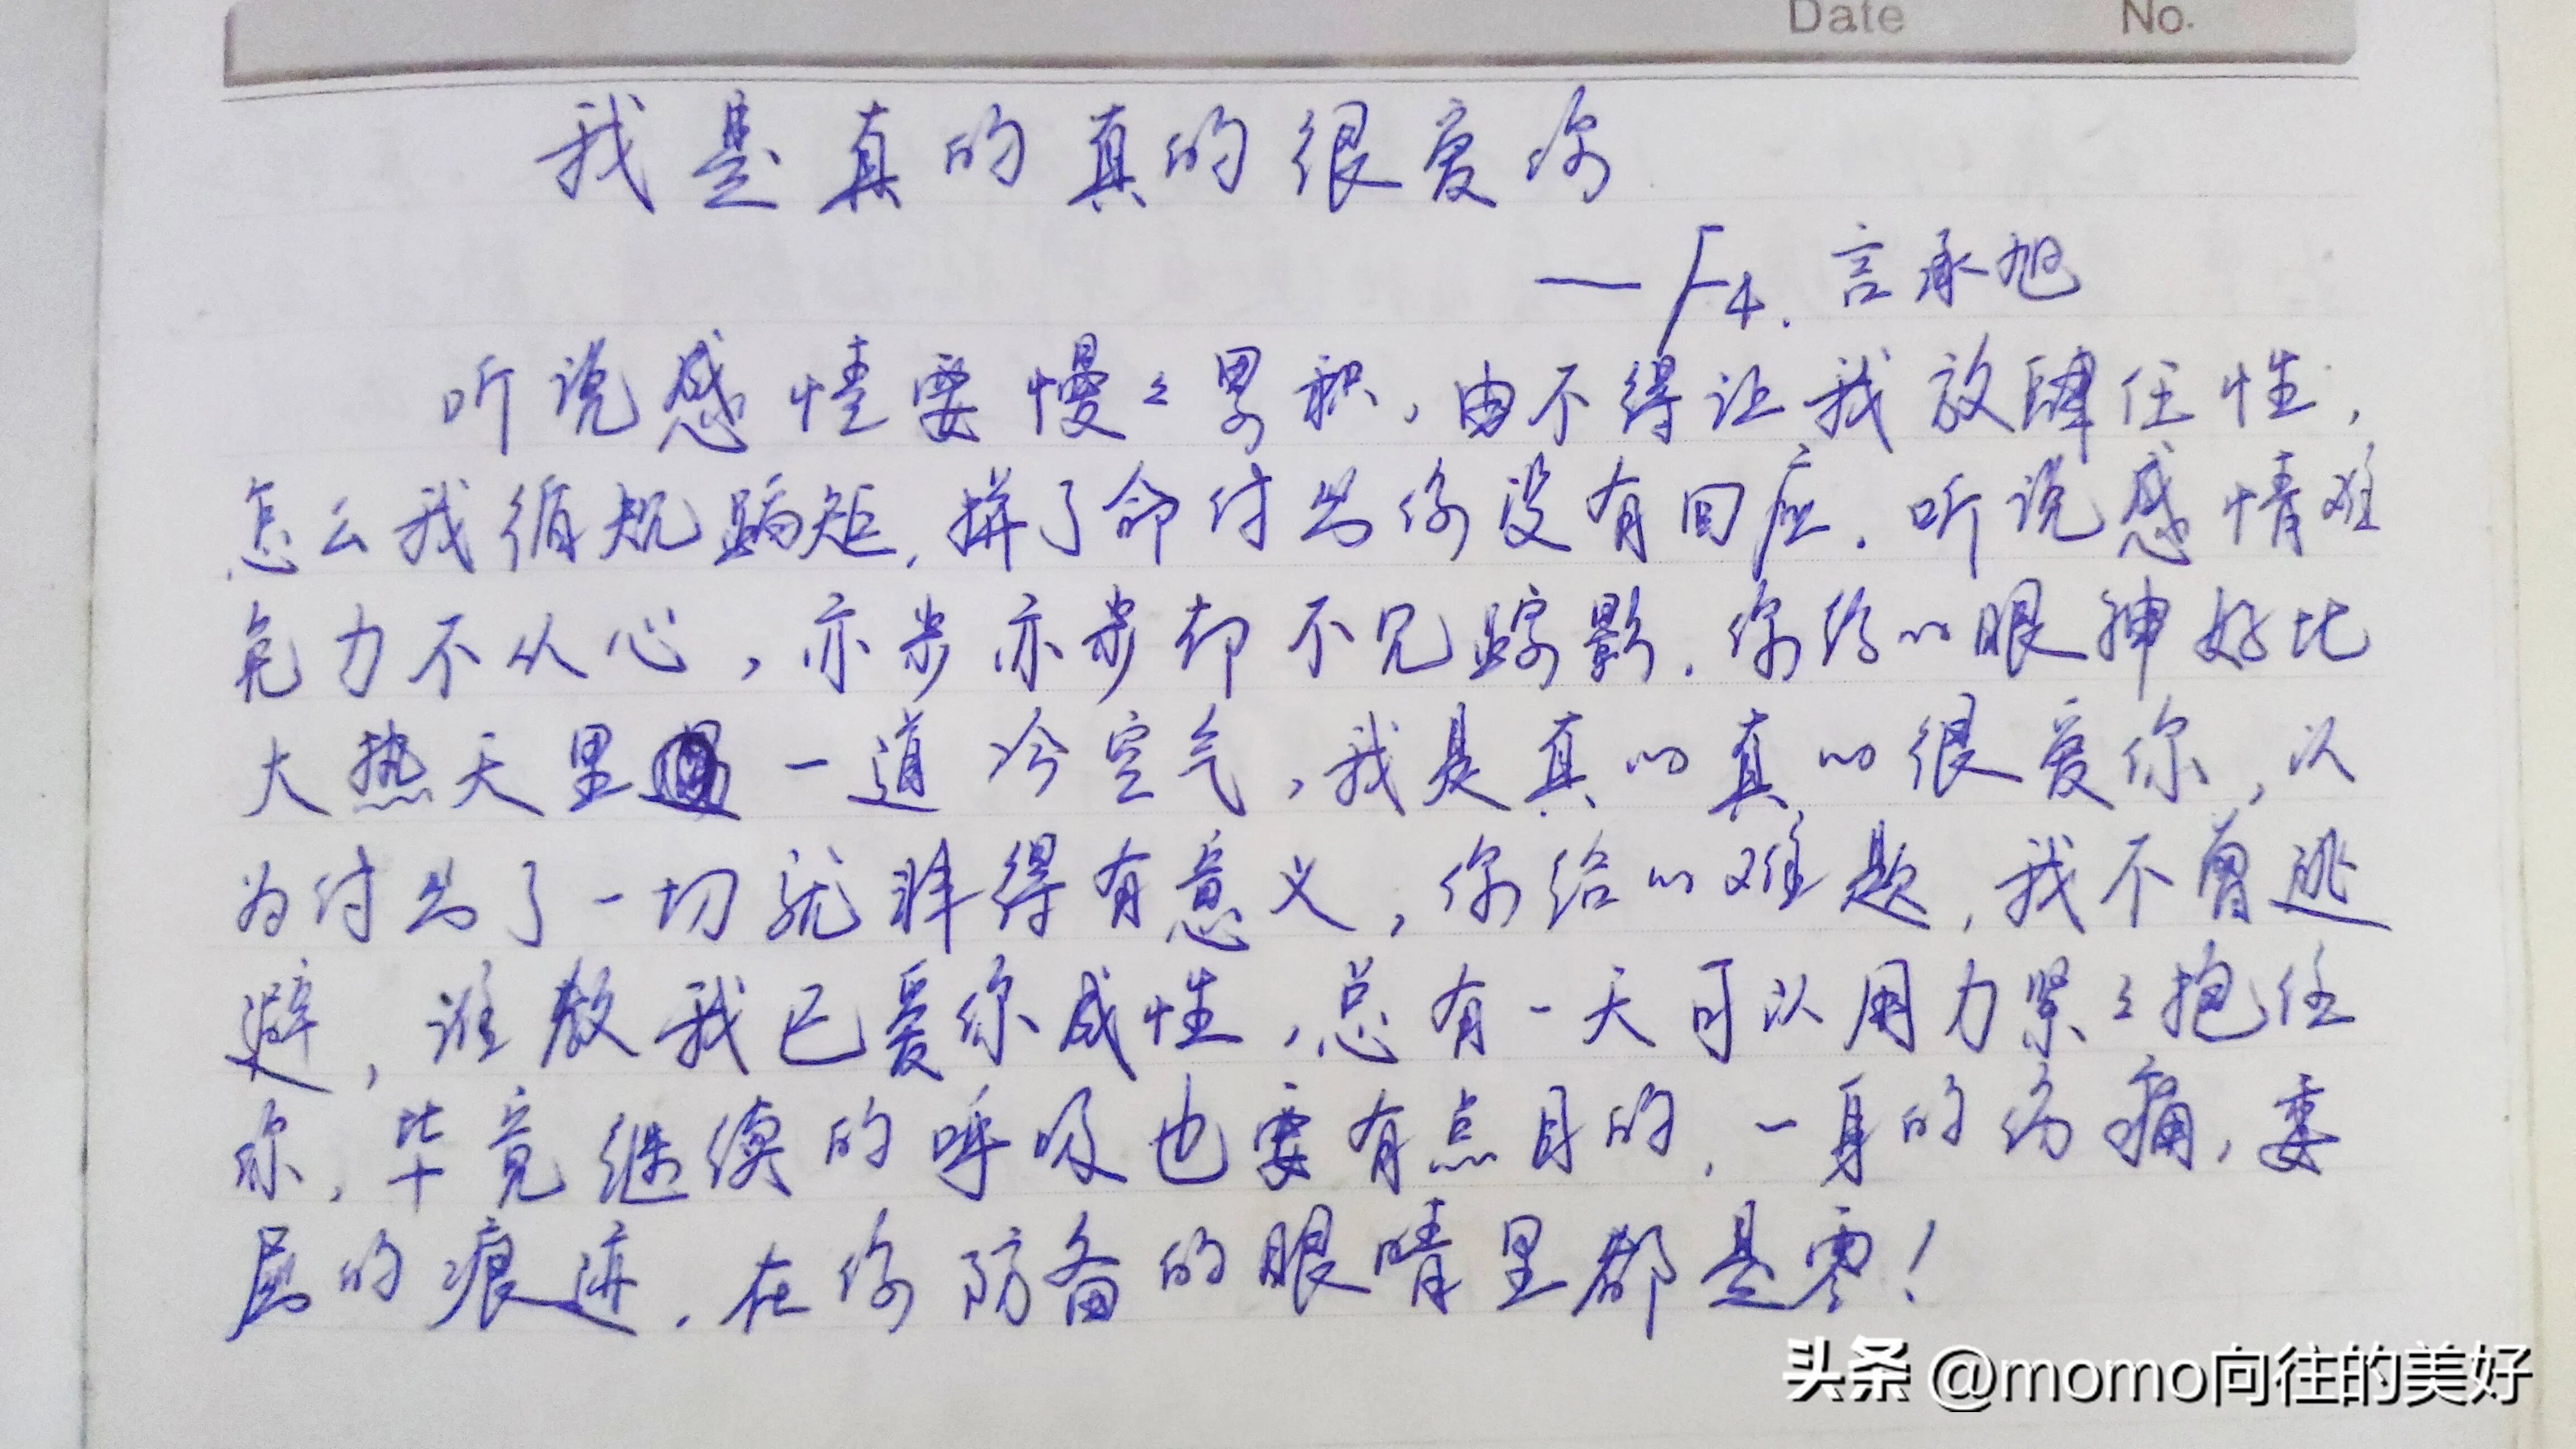 Date No.
我是真的真的很爱你
— F4. 言承旭
听说感情要慢々累积,由不得让我放肆任性,
怎么我循规蹈矩,拼了命付出你没有回应.听说感情难
免力不从心,亦步亦步却不见踪影.你给的眼神好比
大热天里一道冷空气,我是真的真的很爱你,以
为付出了一切就非得有意义,你给的难题,我不曾逃
避,谁教我已爱你成性,总有一天可以用力紧々抱住
你,毕竟继续的呼吸也要有点目的,一身的伤痛,委
屈的痕迹.在你防备的眼睛里都是零!
头条 @momo向往的美好